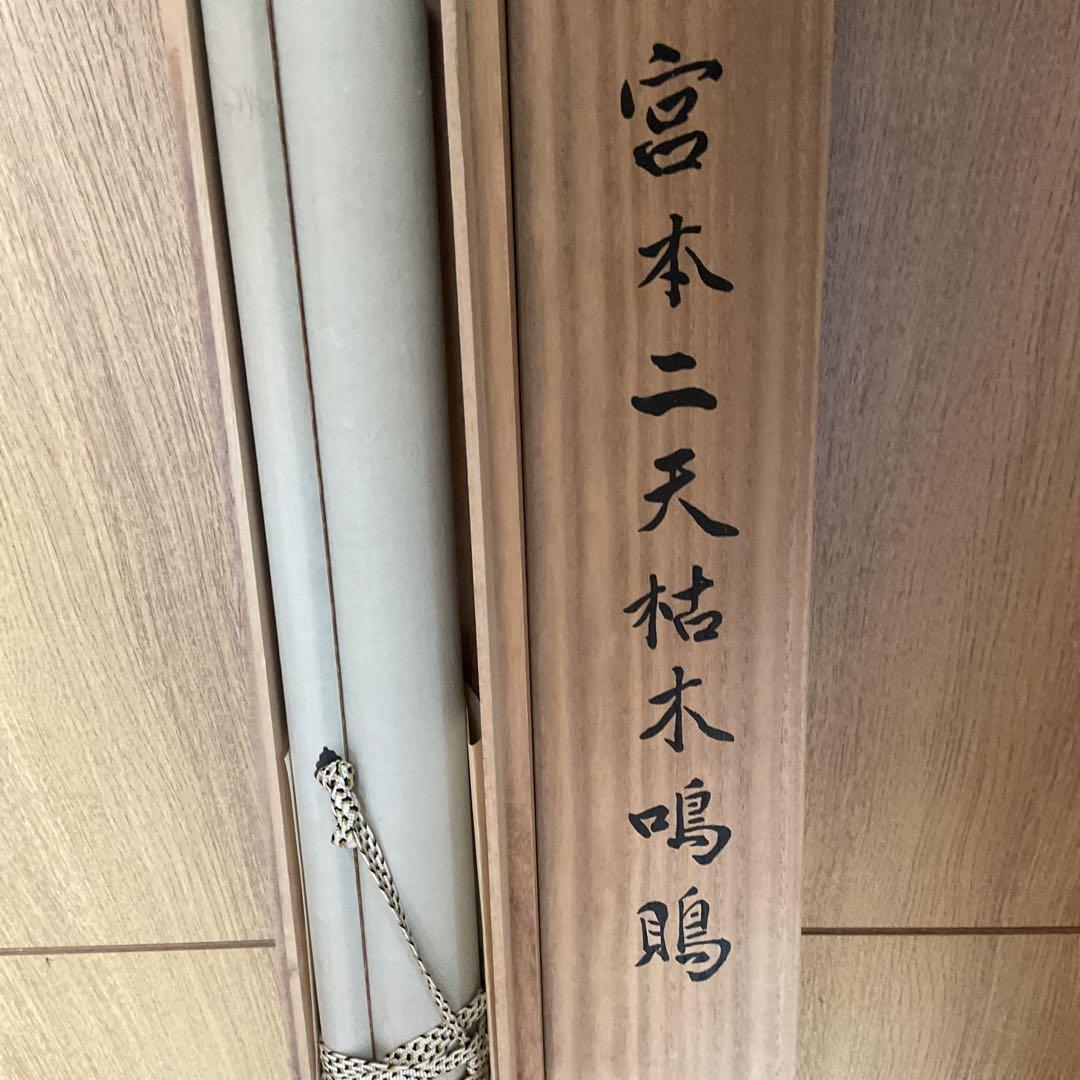 宮本二天枯木鳴鵙